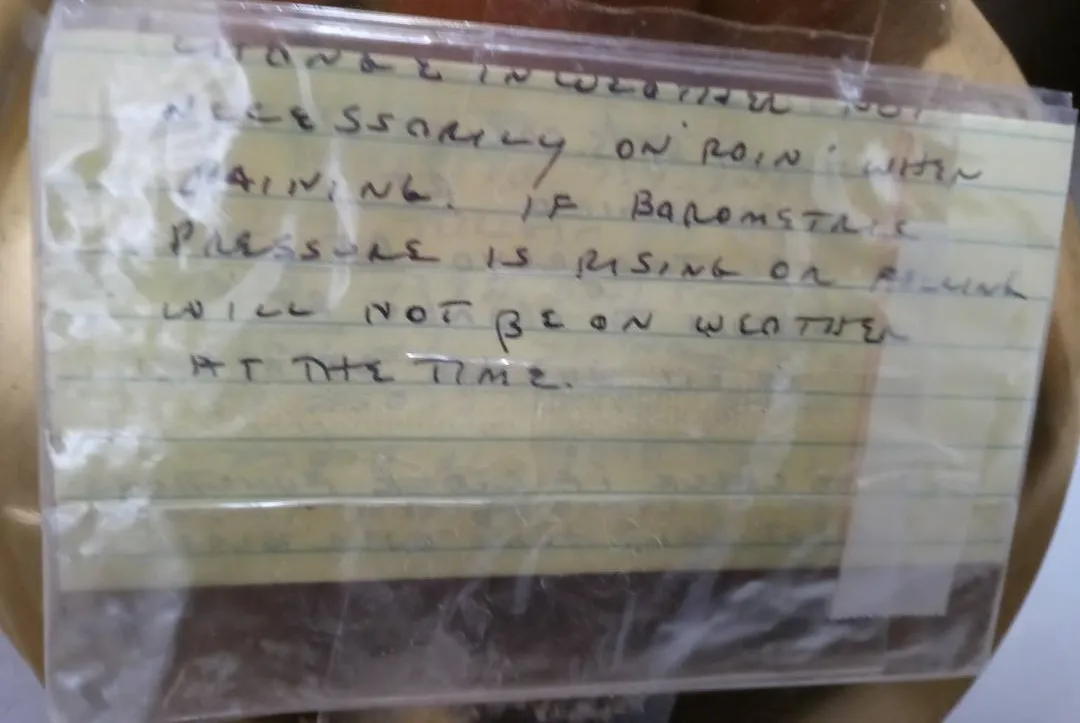 CHANGE IN WEATHER NOT
NECESSARILY ON "RAIN" WHEN
RAINING. IF BAROMETRIC
PRESSURE IS RISING OR FALLING
WILL NOT BE ON WEATHER
AT THE TIME.